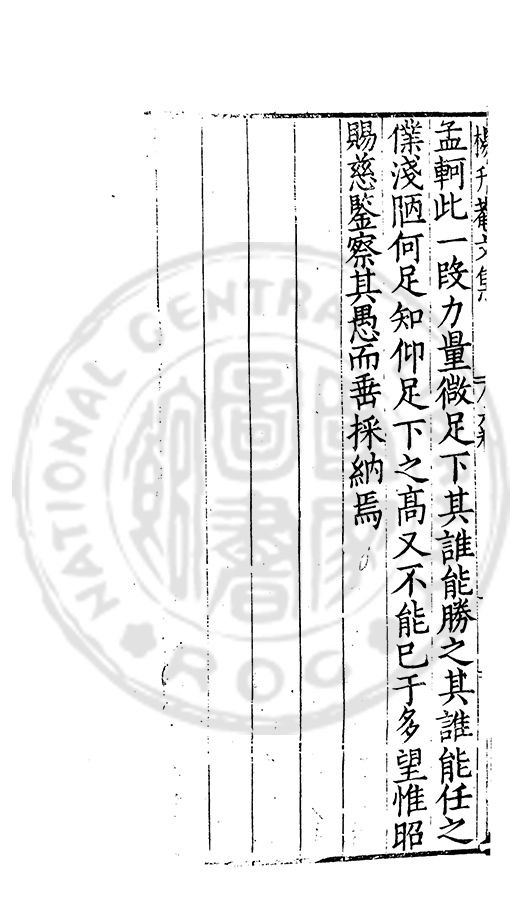 孟軻此一段力量微足下其誰能勝之其誰能任之
僕淺陋何足知仰足下之高又不能已于多望惟昭
賜慈鑒察其愚而垂採納焉
NATIONAL CENTRAL
ROC